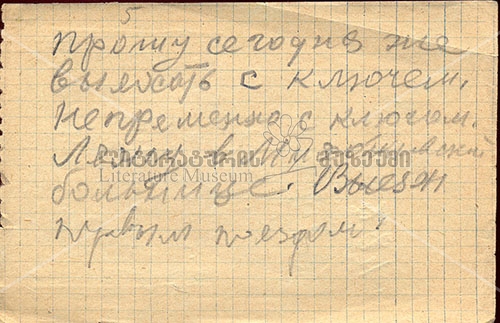 5
Прошу сегодня же
выехать с ключем.
Непременно с ключом.
Лежу в
ლიტერატურის მუზეუმი
Literature Museum
больнице. Выезжай
первым поездом!